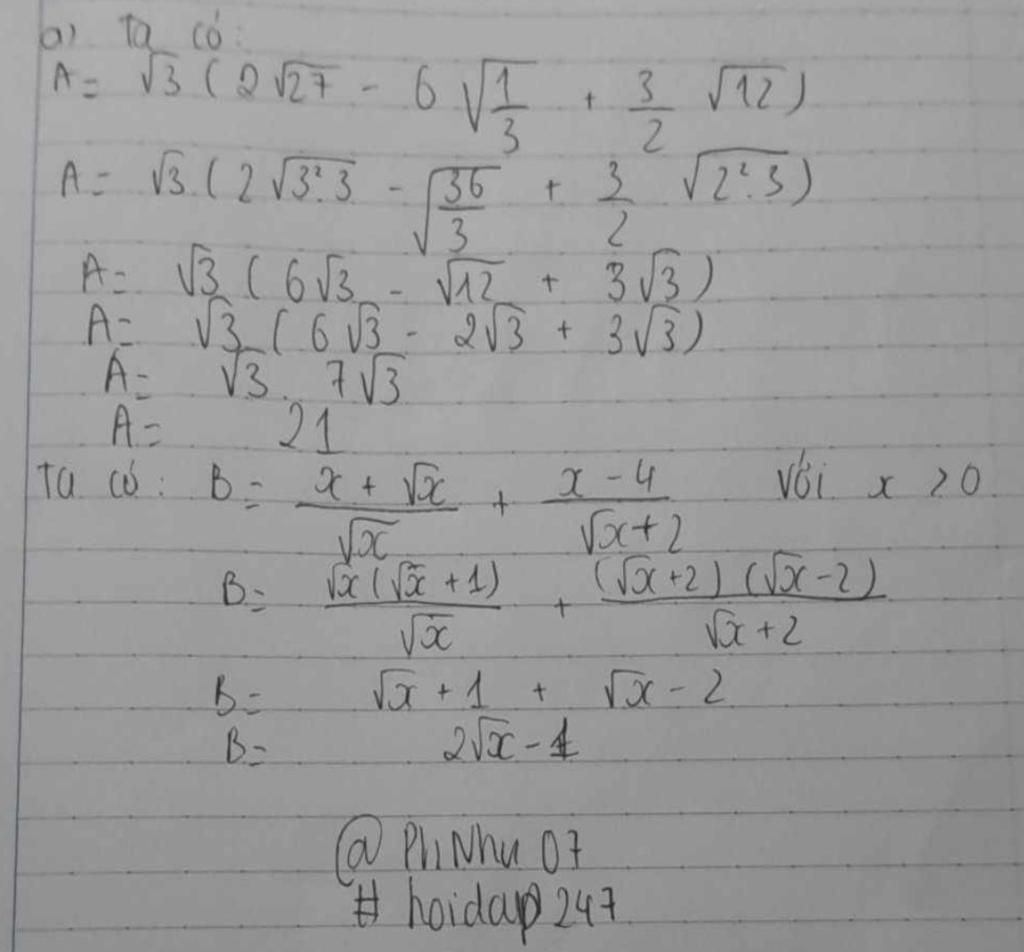 a) Ta có:
A = √3 (2√27 - 6√(1/3) + 3/2 √12)
A = √3 (2√(3².3) - √(36/3) + 3/2 √(2².3))
A = √3 (6√3 - √12 + 3√3)
A = √3 (6√3 - 2√3 + 3√3)
A = √3 . 7√3
A = 21
Ta có: B = (x + √x)/√x + (x - 4)/(√x + 2) với x > 0
B = (√x(√x + 1))/√x + ((√x + 2)(√x - 2))/(√x + 2)
B = √x + 1 + √x - 2
B = 2√x - 1
@ PhiNhu 07
# hoidap 247